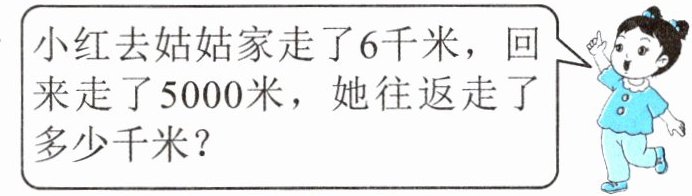 小红去姑姑家走了6千米，回
来走了5000米，她往返走了
多少千米？